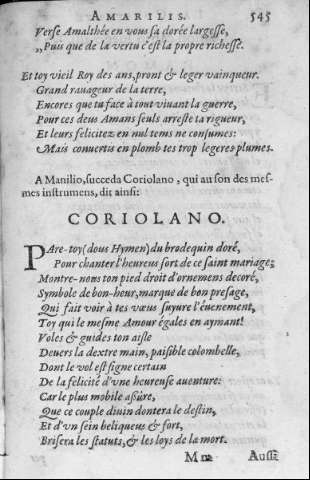 AMARILIS. 545
Verse Amalthée en vous sa dorée largesse,
„Puis que de la vertu c'est la propre richesse.
Et toy vieil Roy des ans, pront & leger vainqueur.
Grand rauageur de la terre,
Encores que tu face à tout viuant la guerre,
Pour ces deus Amans seuls arreste ta rigueur,
Et leurs felicitez en nul tems ne consumes:
Mais conuertis en plomb tes trop legeres plumes.
A Manilio, succeda Coriolano, qui au son des mes-
mes instrumens, dit ainsi:
CORIOLANO.
PAre-toy (dous Hymen) du brodequin doré,
Pour chanter l'heureus sort de ce saint mariage;
Montre-nous ton pied droit d'ornemens decoré,
Symbole de bon-heur, marque de bon presage,
Qui fait voir à tes vœus suyure l'éuenement,
Toy qui le mesme Amour égales en aymant!
Voles & guides ton aisle
Deuers la dextre main, paisible colombelle,
Dont le vol est signe certain
De la felicité d'vne heureuse auenture:
Car le plus mobile asſure,
Que ce couple diuin dontera le destin,
Et d'vn sein beliqueus & fort,
Brisera les statuts, & les loys de la mort.
Mm Aussi